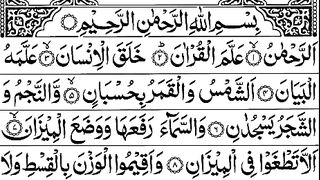 بِسْمِ اللّٰهِ الرَّحْمٰنِ الرَّحِيْمِ
اَلرَّحْمٰنُ ۙ﴿۱﴾ عَلَّمَ الْقُرْاٰنَ ؕ﴿۲﴾ خَلَقَ الْاِنْسَانَ ۙ﴿۳﴾ عَلَّمَهُ
الْبَيَانَ ﴿۴﴾ اَلشَّمْسُ وَالْقَمَرُ بِحُسْبَانٍ ﴿۵﴾ وَّالنَّجْمُ وَ
الشَّجَرُ يَسْجُدٰنِ ﴿۶﴾ وَالسَّمَآءَ رَفَعَهَا وَوَضَعَ الْمِيْزَانَ ۙ﴿۷﴾
اَلَّا تَطْغَوْا فِي الْمِيْزَانِ ﴿۸﴾ وَاَقِيْمُوا الْوَزْنَ بِالْقِسْطِ وَلَا